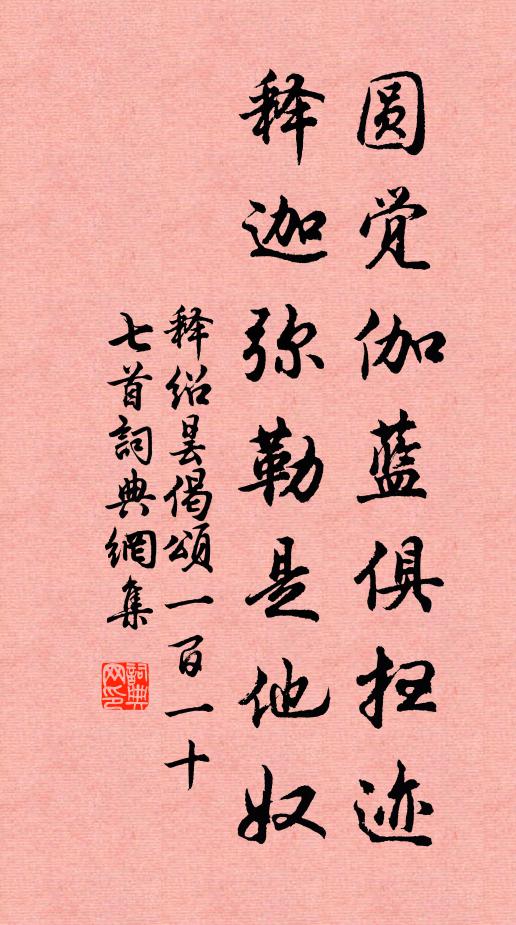 圆觉伽蓝俱扫迹
释迦弥勒是他奴
释绍昙偈颂一百一十
七首詞典網集
詞典
网印